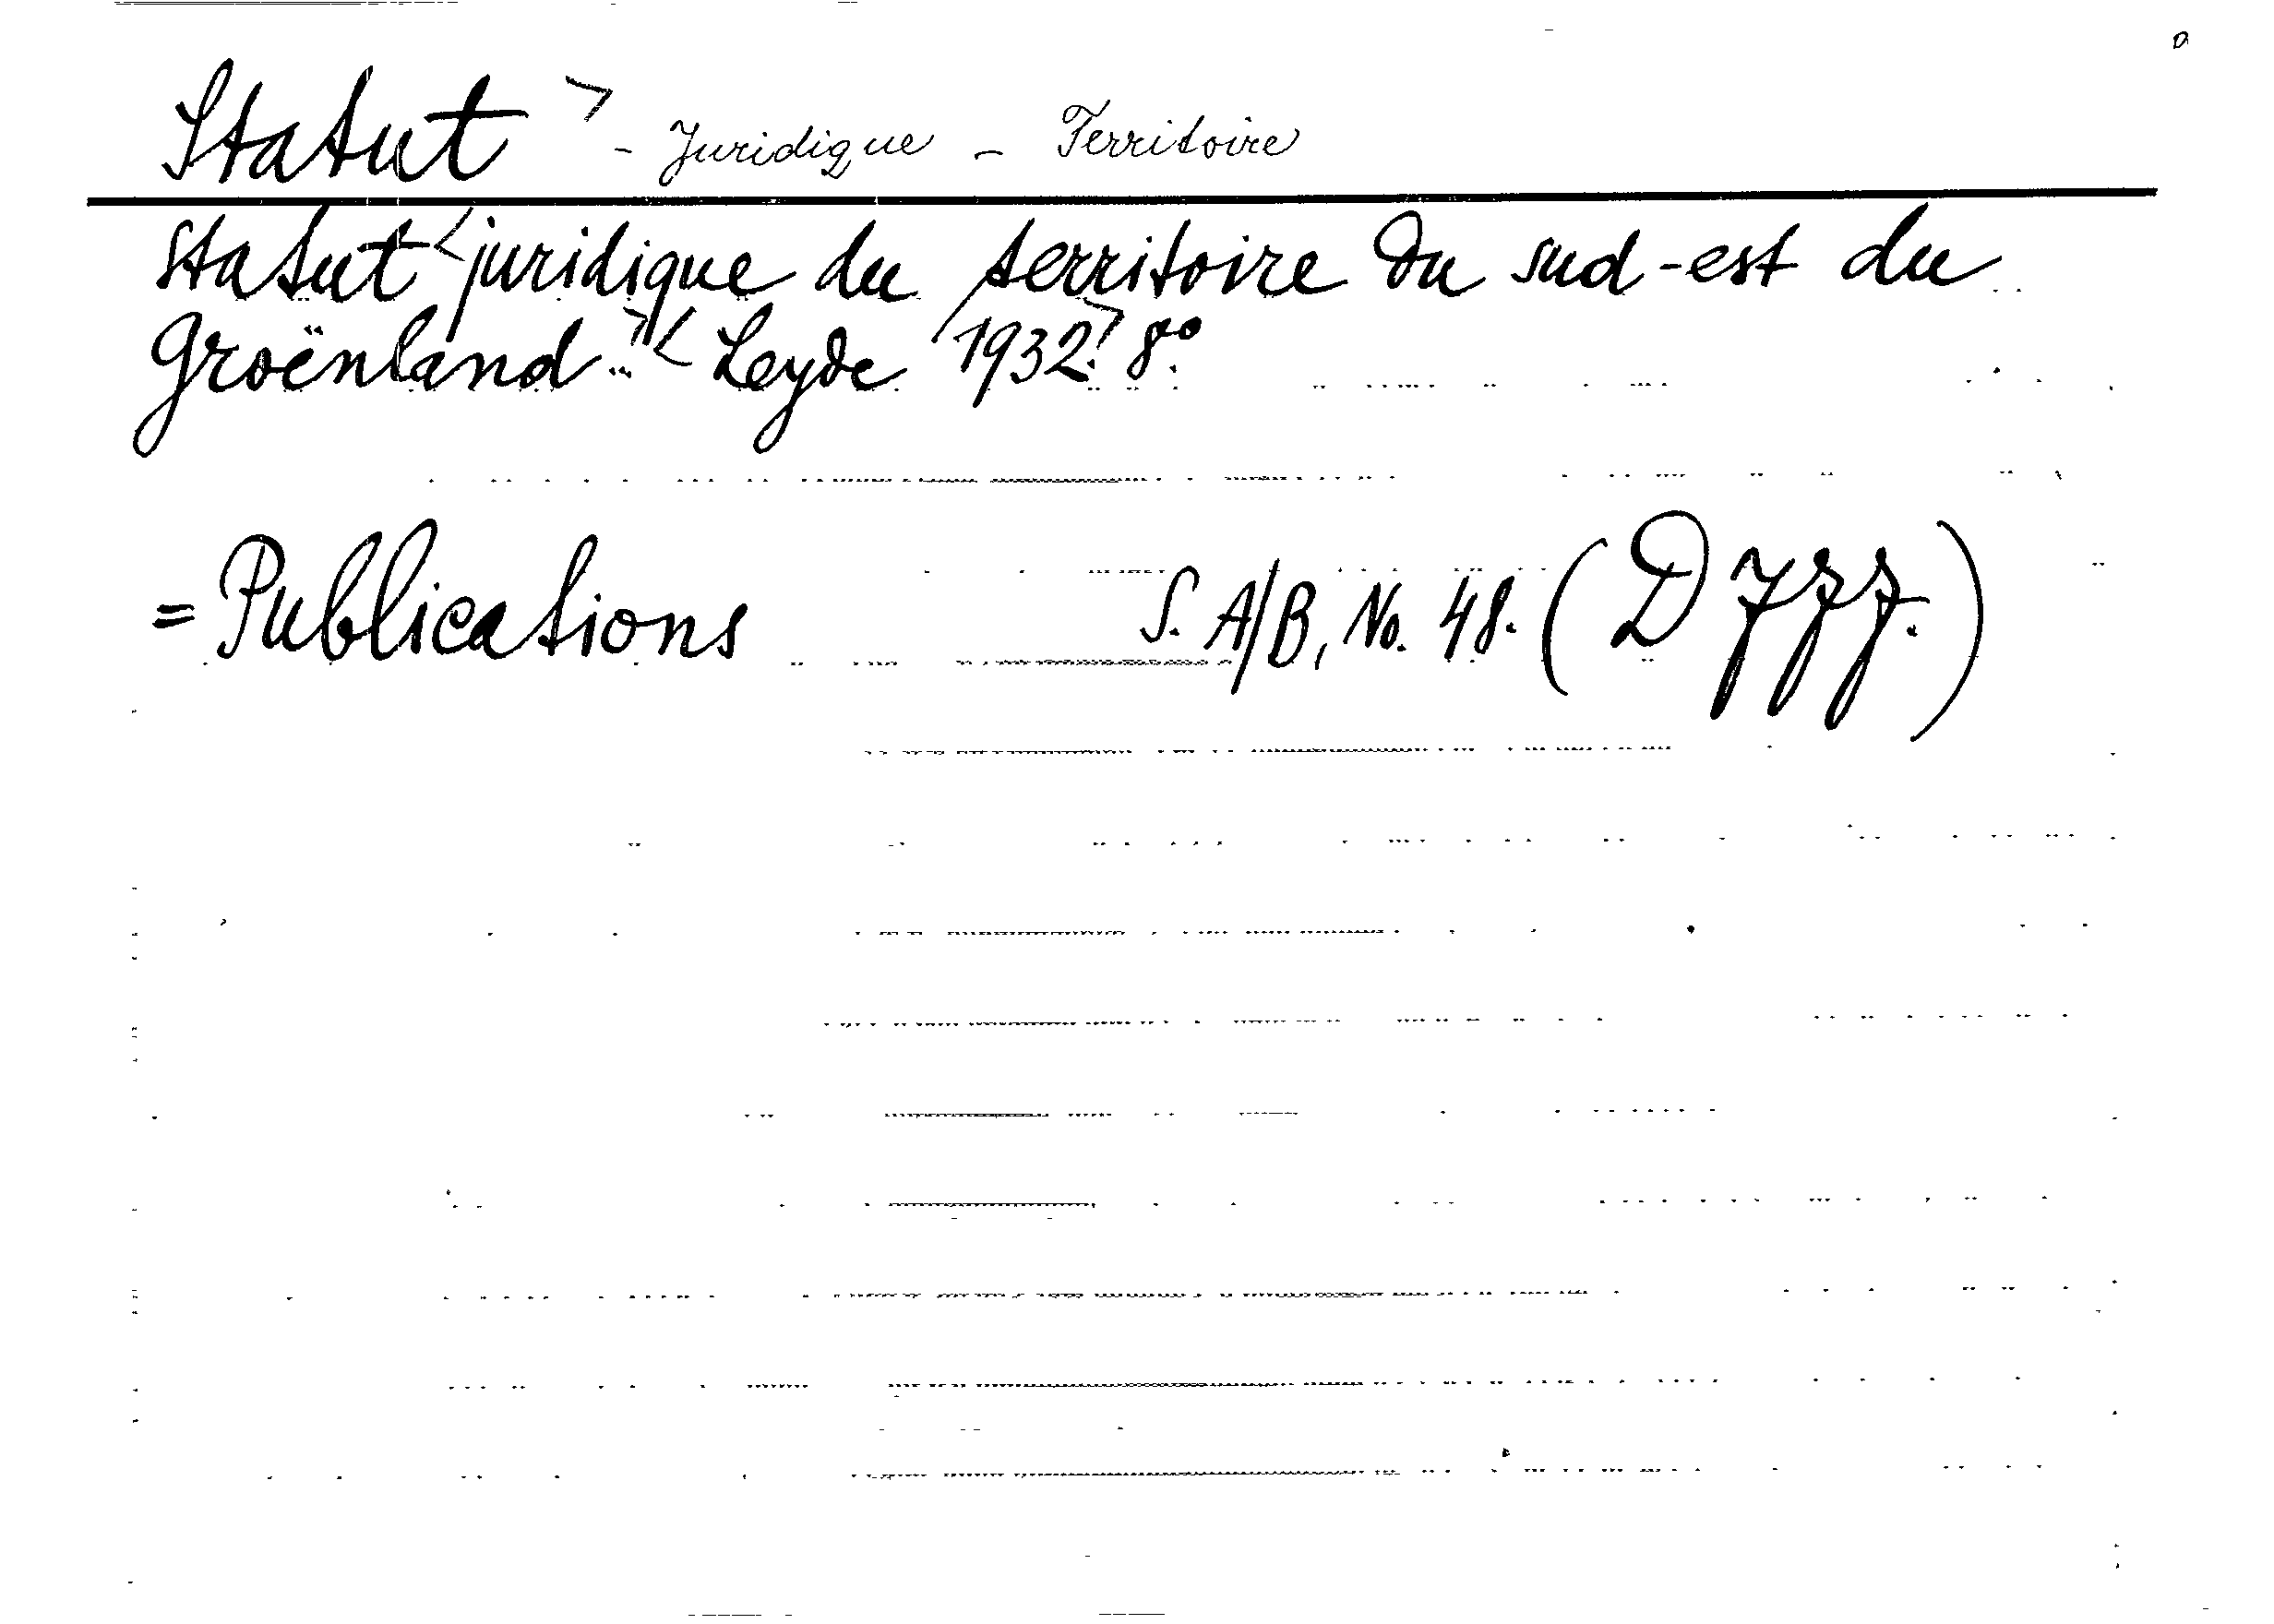 Statut - Juridique - Territoire
Statut juridique du territoire du sud-est du
Groënland. Leyde 1932. 8º.
= Publications S. A/B, No. 48. (D 777.)